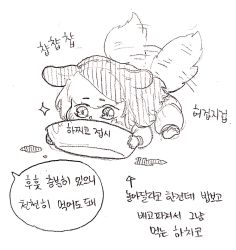 찹찹찹
허겁지겁
하찌코 접시
후훗 충분히 있으니
천천히 먹어도 돼
놓아달라고 할건데 밥보고
배고파져서 그냥
먹는 하치코